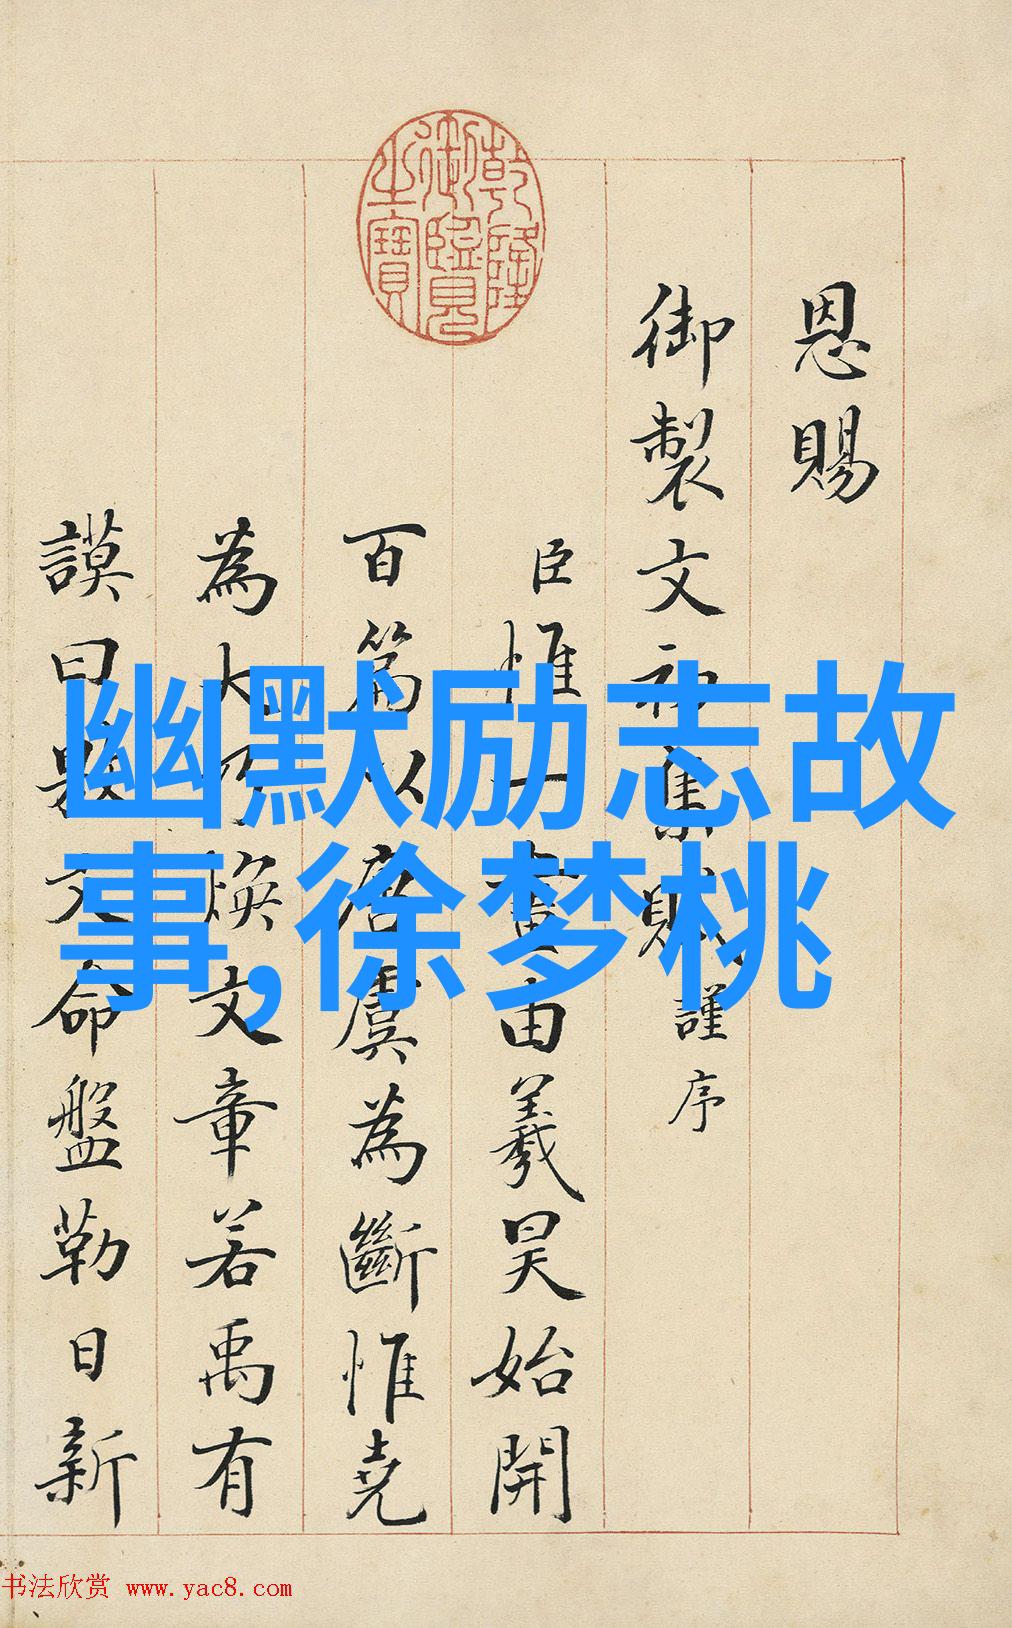 恩賜
御製文初集賦謹序
臣惟一畫由羲昊始開
百篇以唐虞為斷惟堯
為大乃煥文章若禹有
謨曰文命盤勒日新
乾隆御覽之寶
幽默励志故
事,徐梦桃
书法欣赏 www.yac8.com